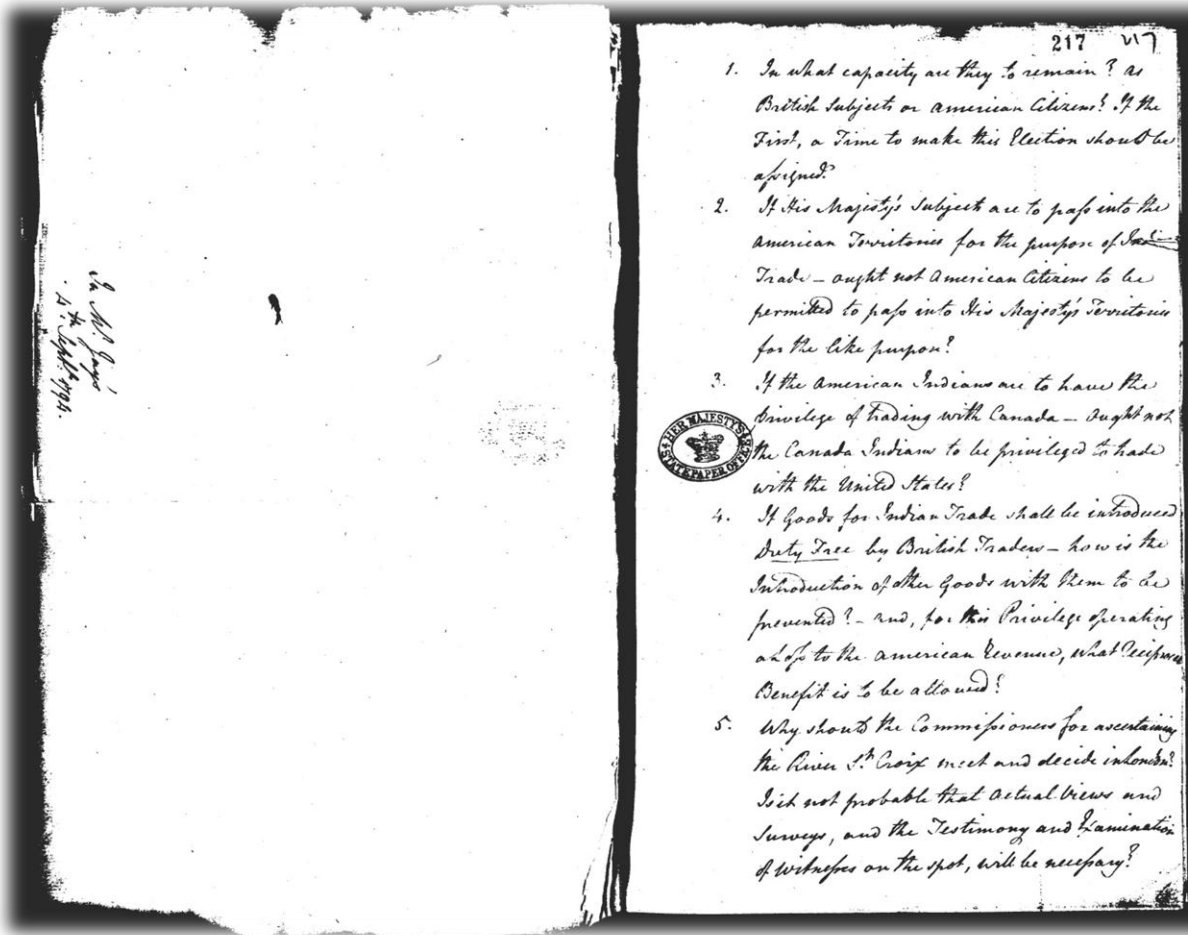 In Mr. Jay's
4th Septr. 1794.
217 217
1. In what capacity are they to remain? as
British Subjects or American Citizens? If the
First, a Time to make this Election should be
assigned.
2. If His Majesty's Subjects are to pass into the
American Territories for the purpose of Indian
Trade – ought not American Citizens to be
permitted to pass into His Majesty's Territories
for the like purpose?
3. If the American Indians are to have the
Privilege of trading with Canada – ought not
the Canada Indians to be privileged to trade
with the United States?
HER MAJESTY'S
STATE PAPER OFFICE
4. If Goods for Indian Trade shall be introduced
Duty Free by British Traders – how is the
Introduction of other Goods with them to be
prevented? – and, for this Privilege operating
a loss to the American Revenue, what reciprocal
Benefit is to be allowed?
5. Why should the Commissioners for ascertaining
the River St. Croix meet and decide in London?
Is it not probable that actual Views and
Surveys, and the Testimony and Examination
of Witnesses on the spot, will be necessary?